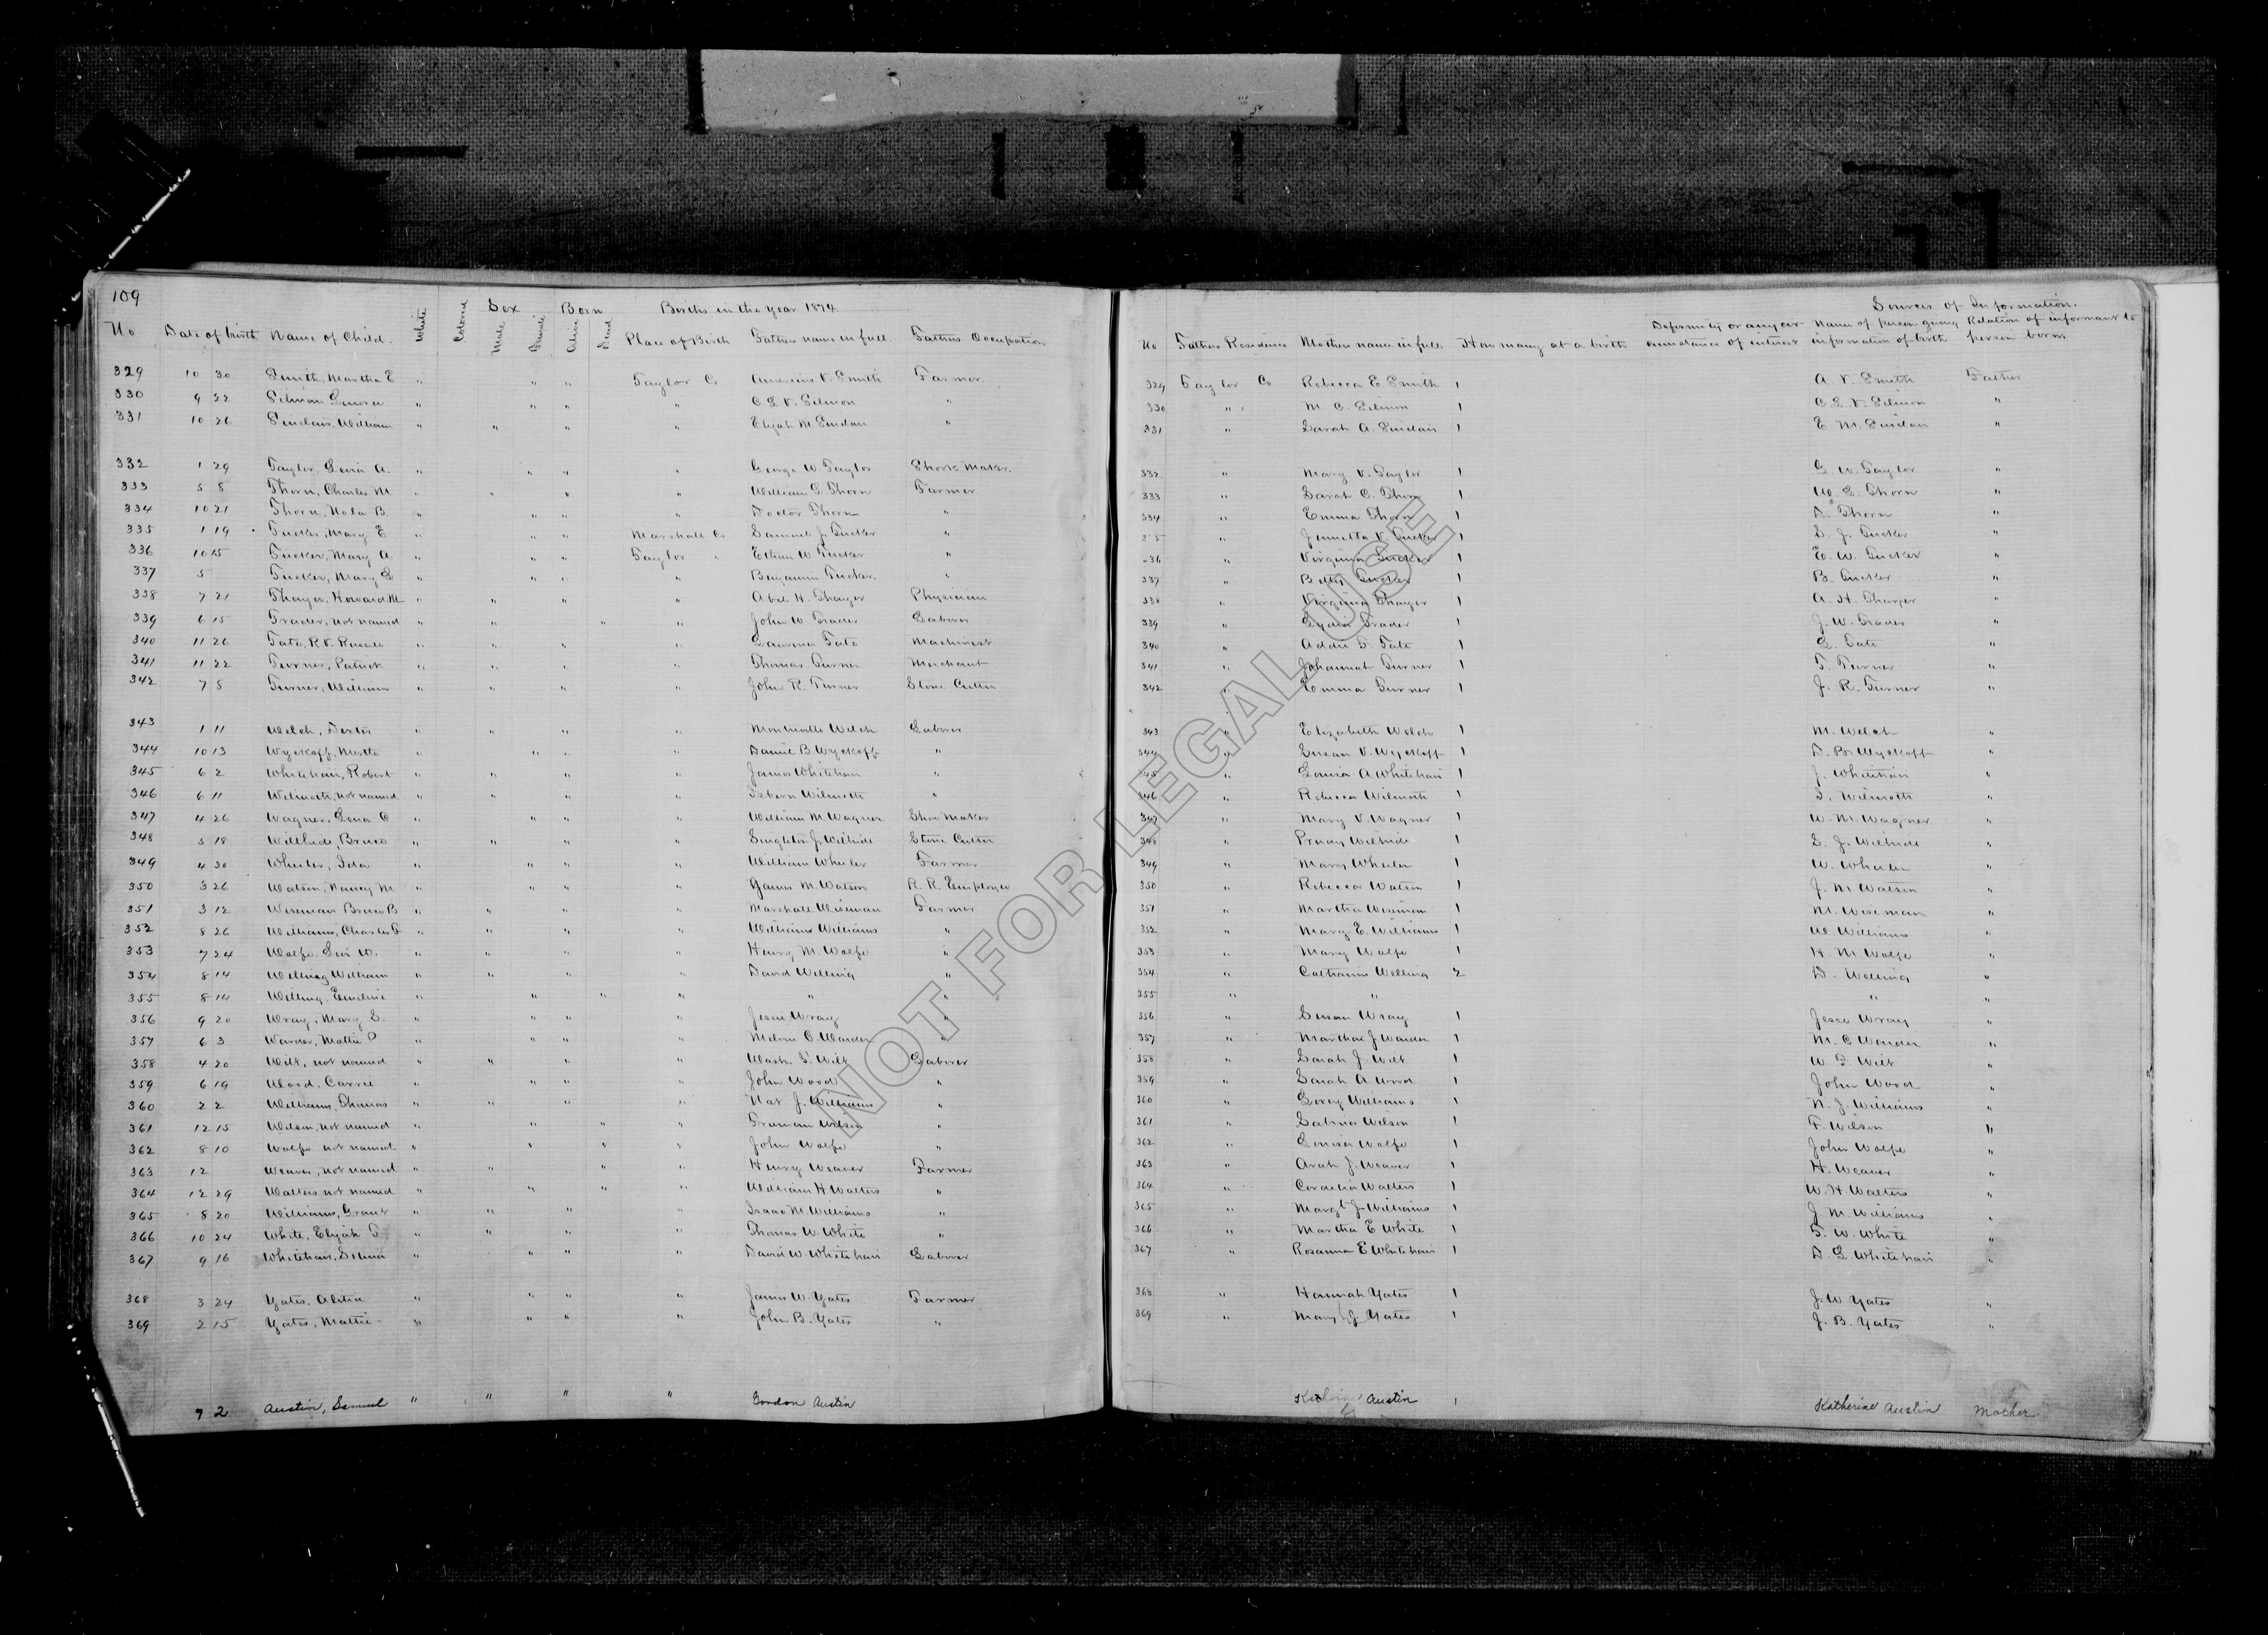 109
Births in the year 1874
Sources of Information.
No Date of birth Name of Child. White Colored Sex Male Female Born Alive Dead Place of Birth Fathers name in full Fathers Occupation
No Fathers Residence Mothers name in full How many at a birth Deformity or any circumstance of interest Name of person giving information of birth Relation of informant to person born
329 10 30 Smith, Martha E " " " Taylor Co Smith Farmer 329 Taylor Co Rebecca E Smith 1 A V. Smith Father
330 9 22 " " " " " 330 " 1 "
331 10 26 Sinclair, William " " " " Elijah M. Sinclair " 331 " Sarah A. Sinclair 1 E M. Sinclair "
332 1 29 Taylor, A. " " " " George W. Taylor Shook Maker. 332 " Mary V. Taylor 1 G W. Taylor "
333 5 8 Thorn, Charles M " " " " William Thorn Farmer 333 " Sarah C. Thorn 1 Thorn "
334 10 21 Thorn, Nola B. " " " " Doctor Thorn " 334 " Emma Thorn 1 D. Thorn "
335 1 19 Tucker, Mary E " " " Marshall Co Samuel J. Tucker " " V. Tucker 1 S. J. Tucker "
336 10 15 Tucker, Mary A " " " Taylor " W Tucker " 336 " Virginia Tucker 1 E. W. Tucker "
337 5 Tucker, Mary " " " " Benjamin Tucker. " 337 " Tucker 1 B. Tucker "
338 7 21 Thayer, Howard M " " " " Abel H. Thayer Physician 338 " Virginia Thayer 1 A. H. Thayer "
339 6 15 Trader, not named " " " " John W Trader Laborer 339 " Lydia Trader 1 J. W. Trader "
340 11 26 Tate, " " " " Lawrence Tate Machinist 340 " Addie Tate 1 L. Tate "
341 11 22 Turner, Patrick " " " " Thomas Turner Merchant 341 " Johannah Turner 1 T. Turner "
342 7 8 Turner, William " " " " John R. Turner Stone Cutter 342 " Emma Turner 1 J. R. Turner "
343 1 11 Welch, Dexter " " " " Welch Laborer 343 " Elizabeth Welch 1 M. Welch "
344 10 13 Wyckoff, " " " " Daniel B Wyckoff " 344 " Susan V. Wyckoff 1 D. B. Wyckoff "
345 6 2 Whitehair, Robert " " " " James Whitehair " 345 " Louisa A Whitehair 1 J. Whitehair "
346 6 11 Wilmoth, not named " " " " Wilmoth " 346 " Rebecca Wilmoth 1 Wilmoth "
347 4 26 Wagner, C " " " " William M. Wagner Shoe Maker 347 " Mary V. Wagner 1 W. M. Wagner "
348 5 18 Bruce " " " " Singleton J. Stone Cutter 348 " 1 S. J. "
349 4 30 Wheeler, Ida " " " " William Wheeler Farmer 349 " Mary Wheeler 1 W. Wheeler "
350 3 26 Watson, Nancy M " " " " James M. Watson R. R. Employee 350 " Rebecca Watson 1 J. M Watson "
351 3 12 Wiseman Bruce B " " " " Marshall Wiseman Farmer 351 " Martha Wiseman 1 M. Wiseman "
352 8 26 Williams, Charles " " " " William Williams " 352 " Mary E. Williams 1 W. Williams "
353 7 24 Wolfe, Levi W. " " " " Henry M. Wolfe " 353 " Mary Wolfe 1 H M. Wolfe "
354 8 14 Welling William " " " " David Welling " 354 " Catharine Welling 2 D. Welling "
355 8 14 Welling, Emeline " " " " " " 355 " " " "
356 9 20 Wray, Mary " " " " Jesse Wray " 356 " Susan Wray 1 Jesse Wray "
357 6 3 Warder, Mattie P " " " " Warder " 357 " Martha J Warder 1 M. C Warder "
358 4 20 Wilt, not named " " " " Wash. Wilt Laborer 358 " Sarah J. Wilt 1 Wilt "
359 6 19 Wood, Carrie " " " " John Wood " 359 " Sarah A Wood 1 John Wood "
360 2 2 Williams, Thomas " " " " Nat J. Williams " 360 " Williams 1 N. J. Williams "
361 12 15 Wilson, not named " " " " Truman Wilson " 361 " Sabina Wilson 1 Wilson "
362 8 10 Wolfe not named " " " " John Wolfe " 362 " Louisa Wolfe 1 John Wolfe "
363 12 Weaver, not named " " " " Henry Weaver Farmer 363 " Arah J. Weaver 1 H. Weaver "
364 12 29 Walters not named " " " " William H Walters " 364 " Cordelia Walters 1 W. H Walters "
365 8 20 Williams, Grant " " " " Isaac M. Williams " 365 " Margt J. Williams 1 J M. Williams "
366 10 24 White, Elijah " " " " Thomas W. White " 366 " Martha E White 1 T. W. White "
367 9 16 Whitehair, " " " " David W. Whitehair Laborer 367 " Rosanna E Whitehair 1 Whitehair "
368 3 24 Yates, " " " " James W. Yates Farmer 368 " Hannah Yates 1 J. W Yates "
369 2 15 Yates, Mattie " " " " John B. Yates " 369 " Mary J Yates 1 J. B. Yates "
7 2 Austin, Samuel " " " " Gordon Austin Katherine Austin 1 Katherine Austin Mother
NOT FOR LEGAL USE